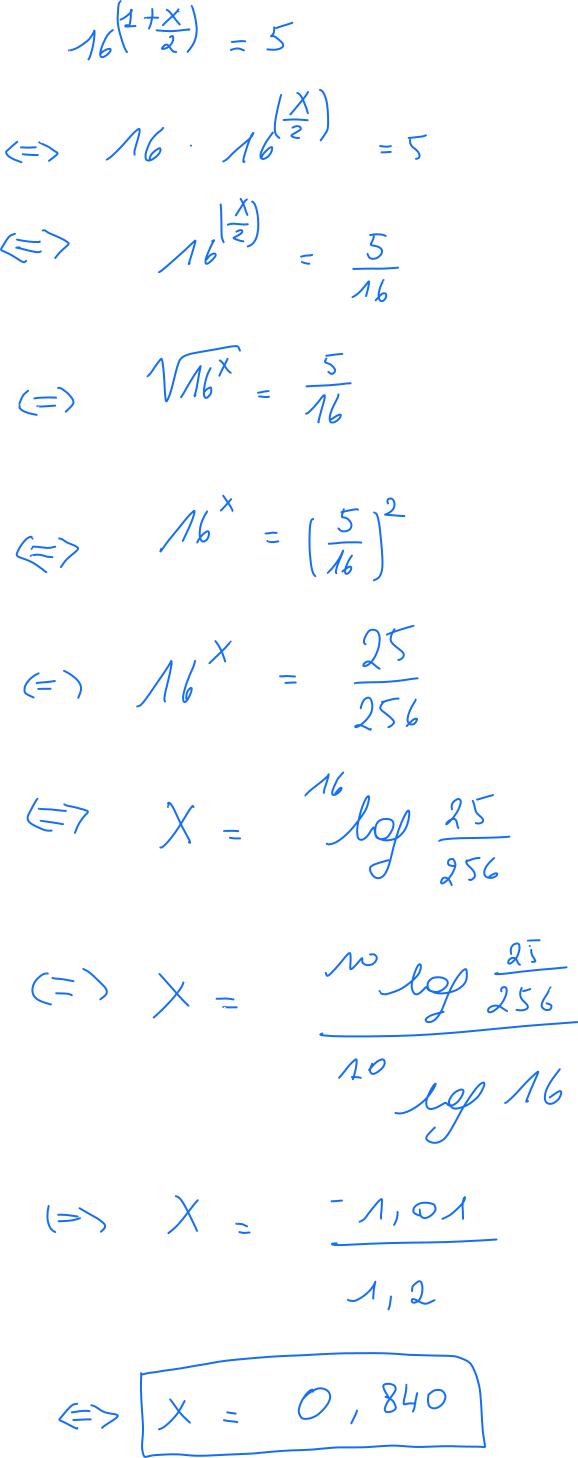 16^(1+x/2) = 5
<=> 16 · 16^(x/2) = 5
<=> 16^(x/2) = 5/16
<=> √16^x = 5/16
<=> 16^x = (5/16)^2
<=> 16^x = 25/256
<=> x = ^16 log 25/256
<=> x = ^10 log 25/256 / ^10 log 16
<=> x = -1,01/1,2
<=> x = 0,840